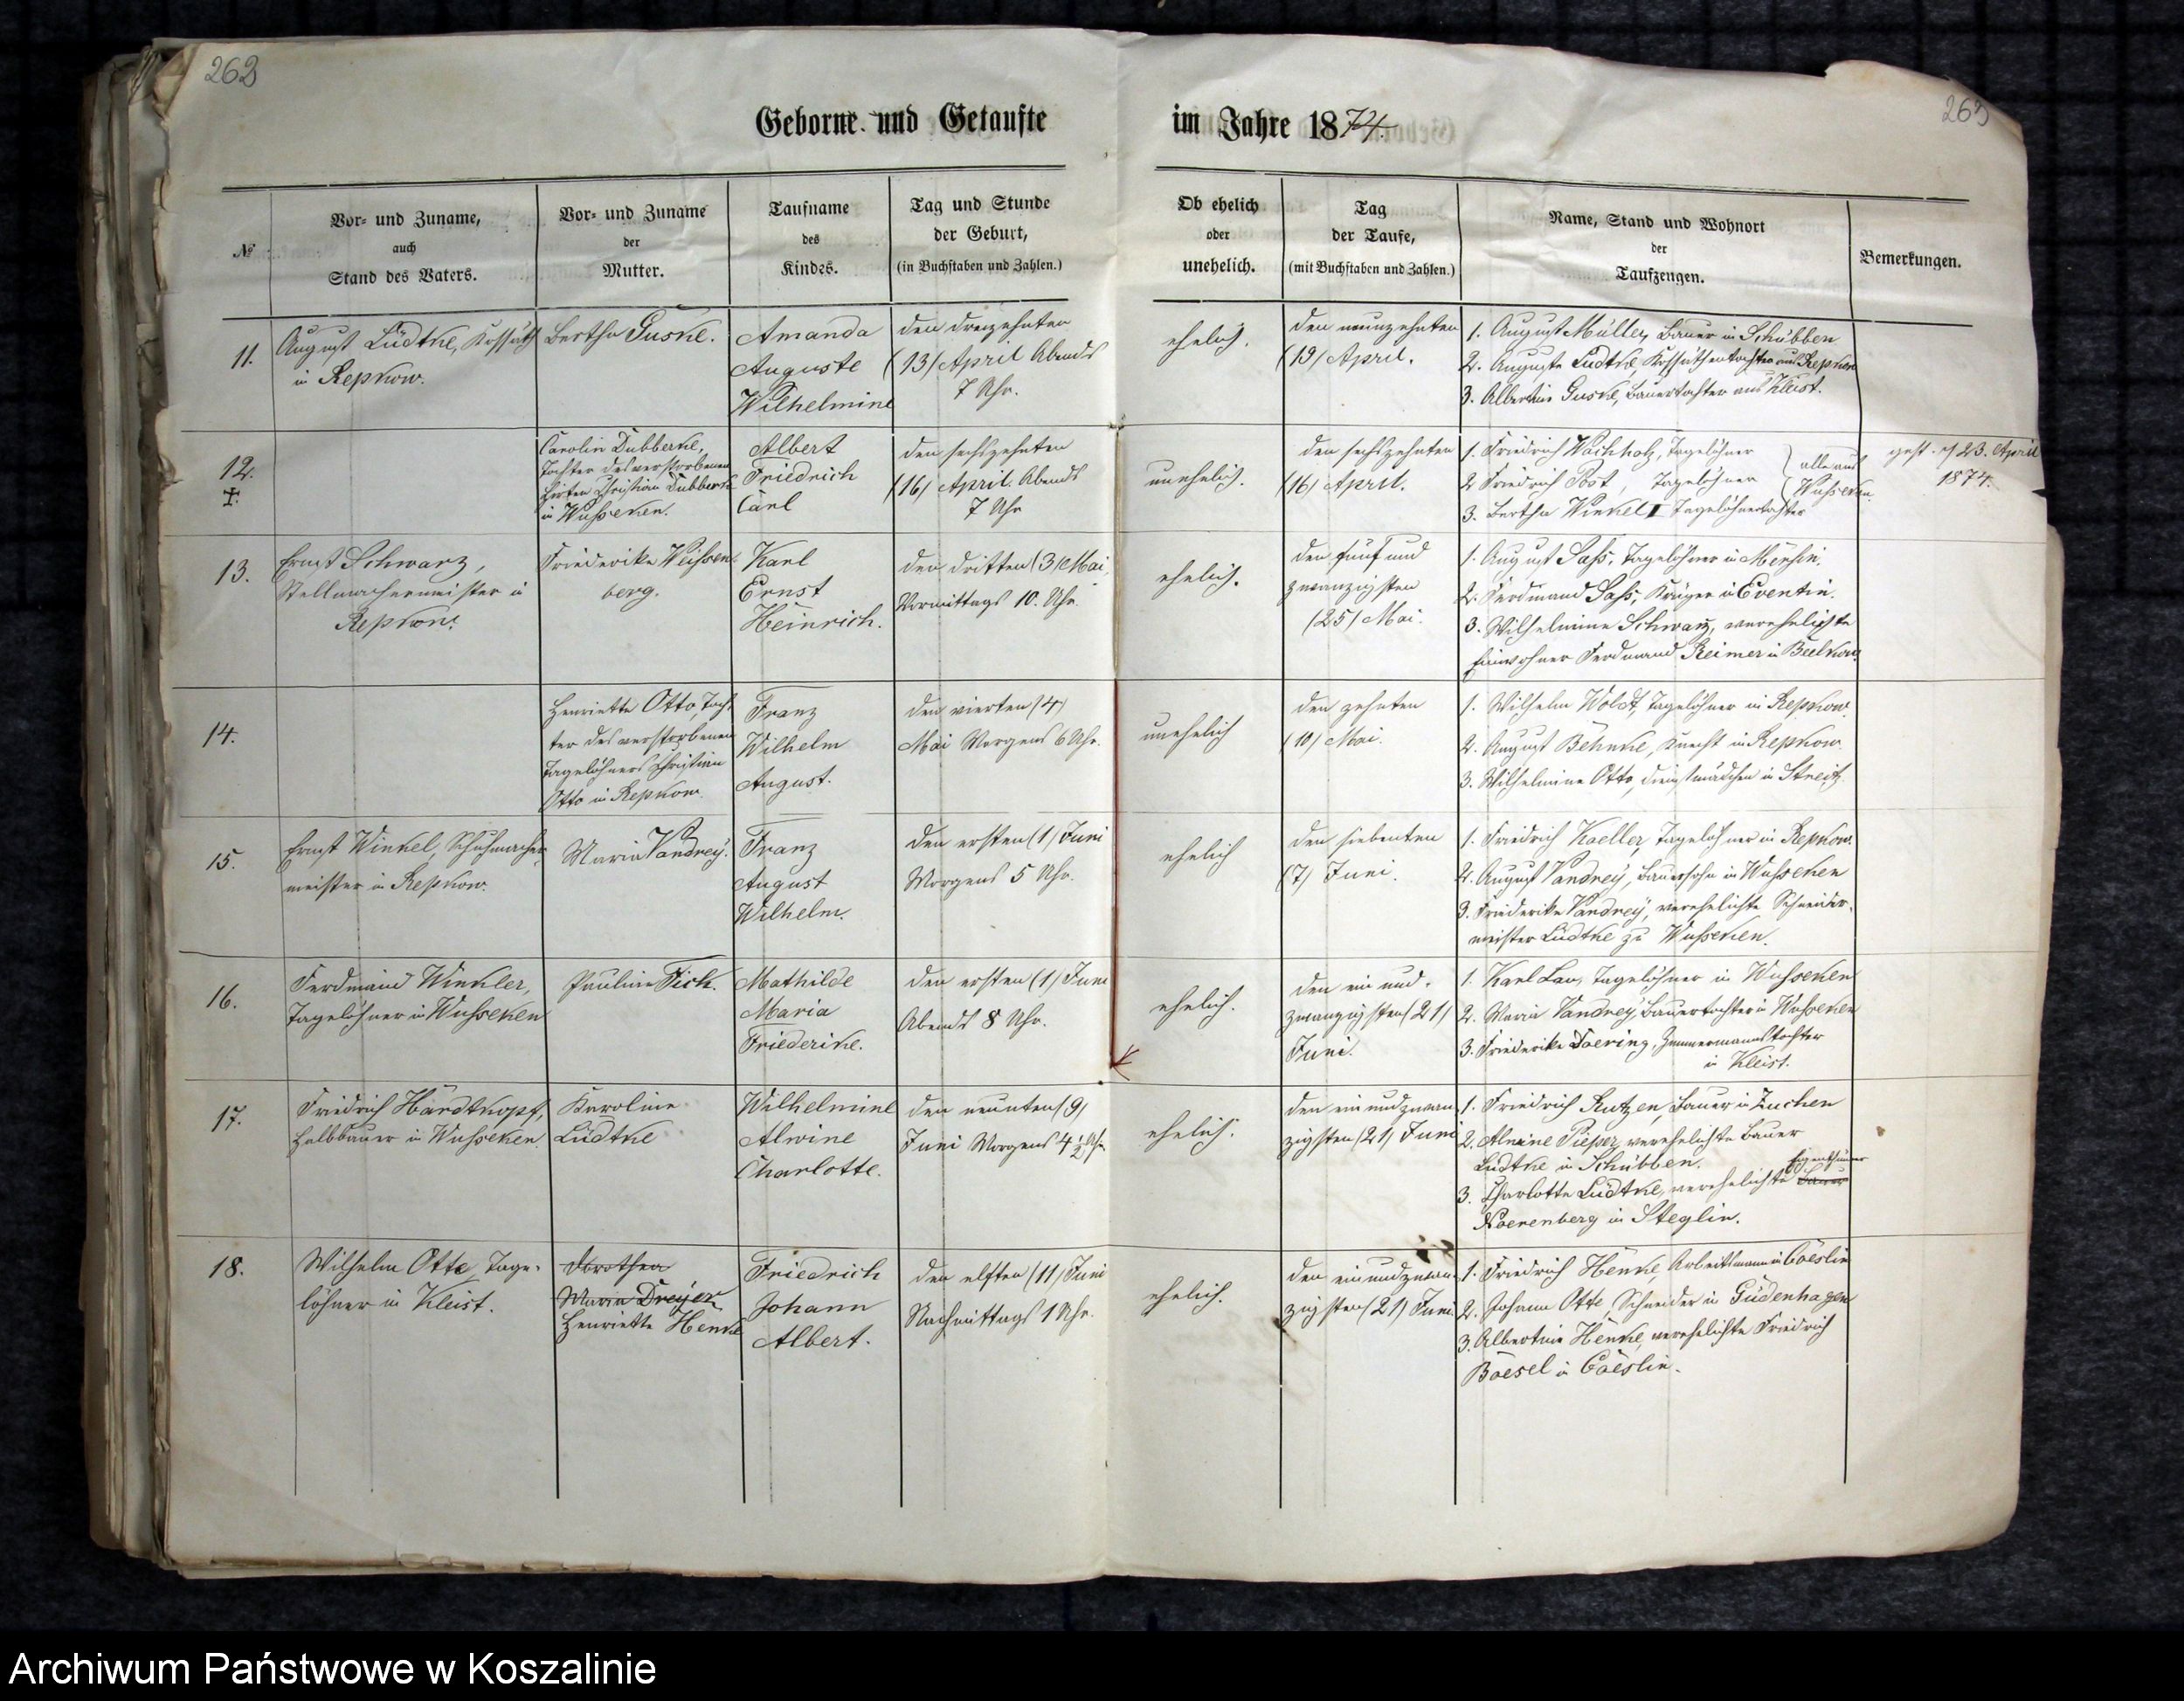 262
263
Geborne und Getaufte im Jahre 1874.
№
Vor- und Zuname,
auch
Stand des Vaters.
Vor- und Zuname
der
Mutter.
Taufname
des
Kindes.
Tag und Stunde
der Geburt,
(in Buchstaben und Zahlen.)
Ob ehelich
oder
unehelich.
Tag
der Taufe,
(mit Buchstaben und Zahlen.)
Name, Stand und Wohnort
der
Taufzeugen.
Bemerkungen.
11.
August Lüdtke, Kossäth
in Repkow.
Bertha Guske.
Amanda
Auguste
Wilhelmine
den dreizehnten
(13) April Abends
7 Uhr.
ehelich.
den neunzehnten
(19) April.
1. August Müller, Bauer in Schübben
2. Auguste Lüdtke, Kossäthentochter aus Repkow
3. Albertine Guske, Bauertochter aus Kleist.
12.
Carolin Dubberke,
Tochter des verstorbenen
Hirten Christian Dubberke
in Wusseken.
Albert
Friedrich
Carl
den sechszehnten
(16) April. Abends
7 Uhr
unehelich.
den sechszehnten
(16) April.
1. Friedrich Wachholz, Tagelöhner
2. Friedrich Post, Tagelöhner
3. Bertha Winkel I Tagelöhnertochter
alle aus
Wusseken.
gest. d 23. April
1874.
13.
Ernst Schwarz,
Stellmachermeister in
Repkow.
Friederike Weissen-
berg.
Karl
Ernst
Heinrich.
den dritten (3) Mai,
Vormittags 10. Uhr.
ehelich.
den fünf und
zwanzigsten
(25) Mai.
1. August Sass, Tagelöhner in Mersin.
2. Ferdinand Sass, Krüger in Eventin.
3. Wilhelmine Schwarz, verehelichte
Einwohner Ferdinand Reimer in Beelkow.
14.
Henriette Otto, Toch-
ter des verstorbenen
Tagelöhners Christian
Otto in Repkow.
Franz
Wilhelm
August.
den vierten (4)
Mai Morgens 6 Uhr.
unehelich
den zehnten
(10) Mai.
1. Wilhelm Woldt, Tagelöhner in Repkow.
2. August Behnke, Knecht in Repkow.
3. Wilhelmine Otto, Dienstmädchen in Streitz.
15.
Ernst Winkel, Schuhmacher-
meister in Repkow.
Maria Vandrey.
Franz
August
Wilhelm.
den ersten (1) Juni
Morgens 5 Uhr.
ehelich
den siebenten
(7) Juni.
1. Friedrich Koeller, Tagelöhner in Repkow.
2. August Vandrey, Bauersohn in Wusseken
3. Friederike Vandrey, verehelichte Schneider-
meister Lüdtke zu Wusseken.
16.
Ferdinand Winkler,
Tagelöhner in Wusseken
Pauline Fick.
Mathilde
Maria
Friederike.
den ersten (1) Juni
Abends 8 Uhr.
ehelich.
den ein und-
zwanzigsten (21)
Juni.
1. Karl Lau, Tagelöhner in Wusseken
2. Maria Vandrey, Bauertochter in Wusseken
3. Friederike Doering, Zimmermannstochter
in Kleist.
17.
Friedrich Hardtkopf,
Halbbauer in Wusseken
Karoline
Lüdtke
Wilhelmine
Alwine
Charlotte.
den neunten (9)
Juni Morgens 4 1/2 Uhr
ehelich.
den ein und zwan-
zigsten (21) Juni
1. Friedrich Rutzen, Bauer in Zuchen
2. Alwine Pieper, verehelichte Bauer
Lüdtke in Schübben.
3. Charlotte Lüdtke, verehelichte Bauer Eigenthümer
Noerenberg in Steglin.
18.
Wilhelm Otte, Tage-
löhner in Kleist.
Dorothea
Maria Dreyer
Henriette Henke
Friedrich
Johann
Albert.
den elften (11) Juni
Nachmittags 1 Uhr.
ehelich.
den ein und zwan-
zigsten (21) Juni
1. Friedrich Henke, Arbeitsmann in Coeslin
2. Johann Otte, Schneider in Güdenhagen
3. Albertine Henke, verehelichte Friedrich
Boesel in Coeslin.
Archiwum Państwowe w Koszalinie